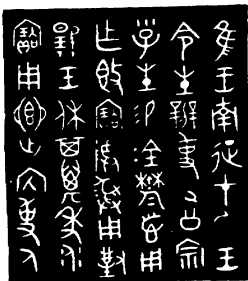 隹王南征才王
令生辨事公宗小
子生易金鬱鬯用
乍簋寶尊彝用對
揚王休其萬年永
寶用鄉出內事人